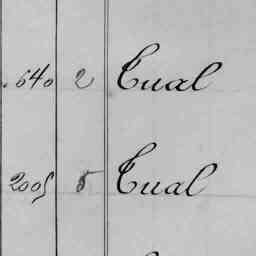 640 2 Tual
2005 5 Tual